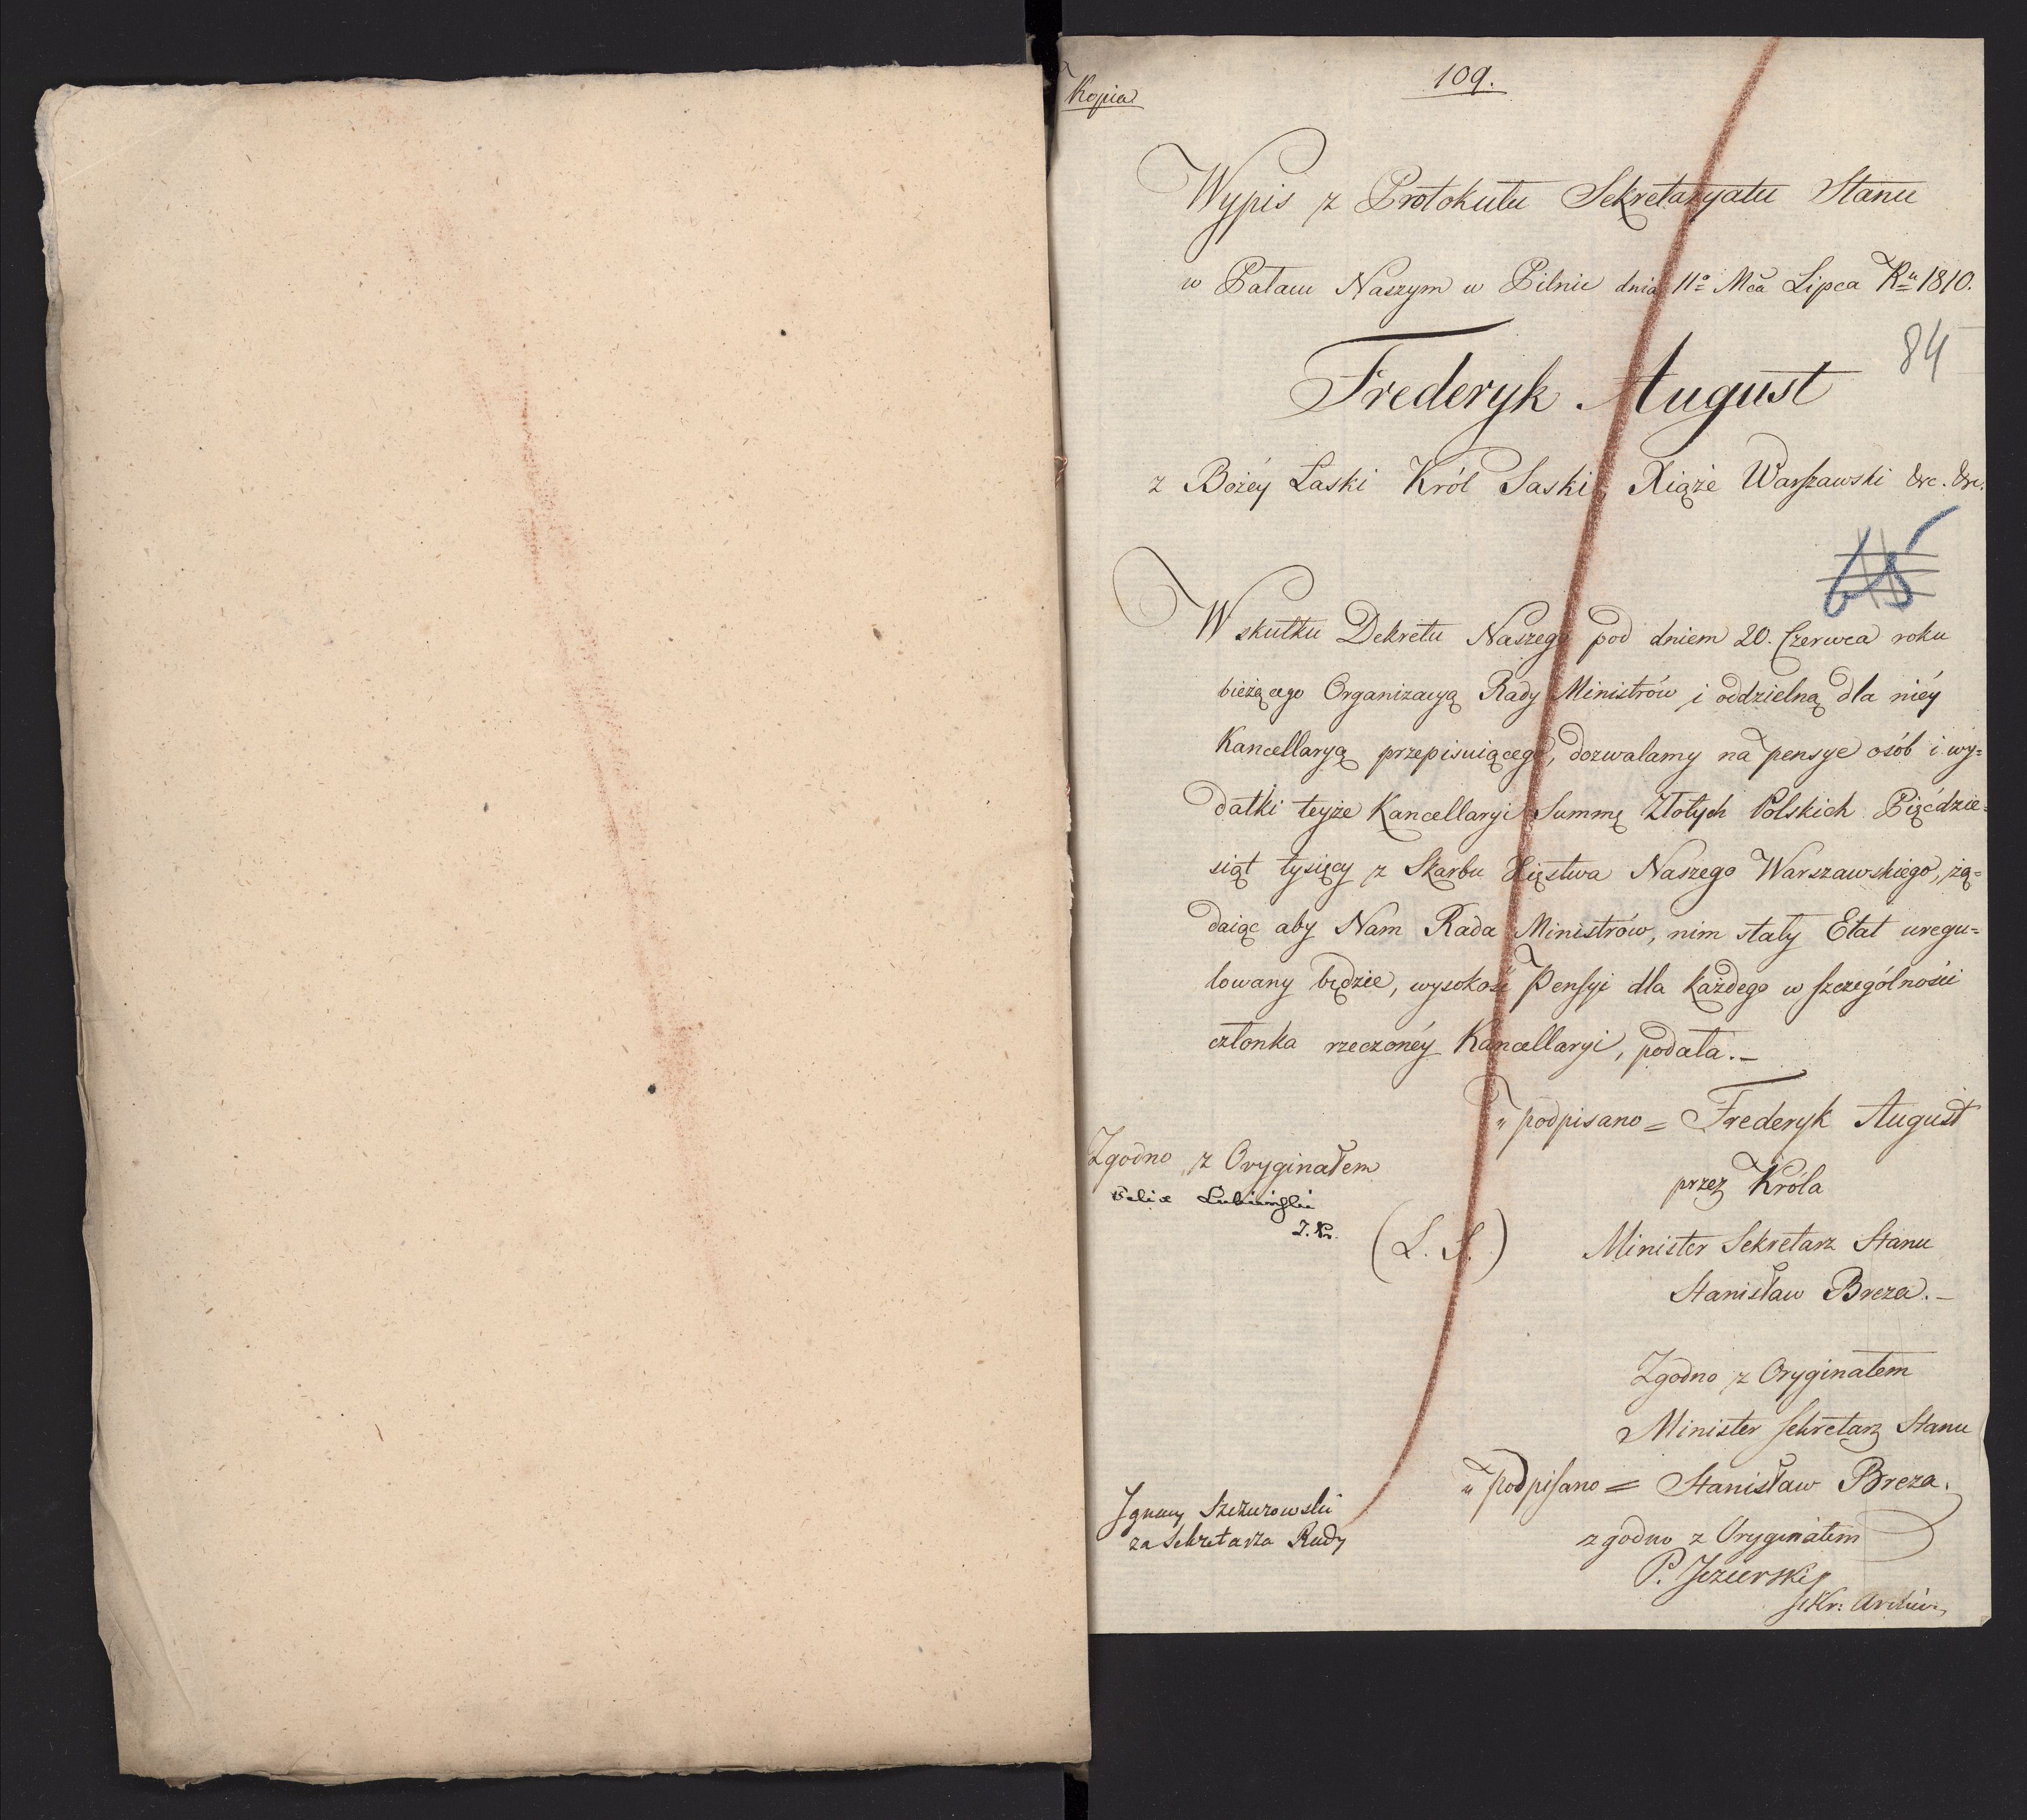 Kopia
109.
Wypis z Protokułu Sekretaryatu Stanu
w Pałacu Naszym w Pilnic dnia 11º Mca Lipca Ru 1810.
84
Frederyk August
z Bożéy Łaski Król Saski, Xiąże Warszawski &c. &c.
65
W skutku Dekretu Naszego pod dniem 20. Czerwca roku
bieżącego Organizacyą Rady Ministrów i oddzielną dla niéy
Kancellaryą przepisuiącego, dozwalamy na pensye osób i wy=
datki teyże Kancellaryi Summę Złotych Polskich Pięćdzie=
siąt tysięcy z Skarbu Xięstwa Naszego Warszawskiego, żą=
daiąc aby Nam Rada Ministrów, nim stały Etat uregu=
lowany będzie, wysokość Pensyi dla każdego w szczególności
członka rzeczonéy Kancellaryi, podała.—
"podpisano = Frederyk August
Zgodno z Oryginałem
przez Króla
Felix Lubieński
(L. S.)
Minister Sekretarz Stanu
Stanisław Breza.—
Zgodno z Oryginałem
Minister Sekretarz Stanu
"podpisano = Stanisław Breza.
Ignacy Szczurowski
za Sekretarza Rady
zgodno z Oryginałem
P. Jezierski